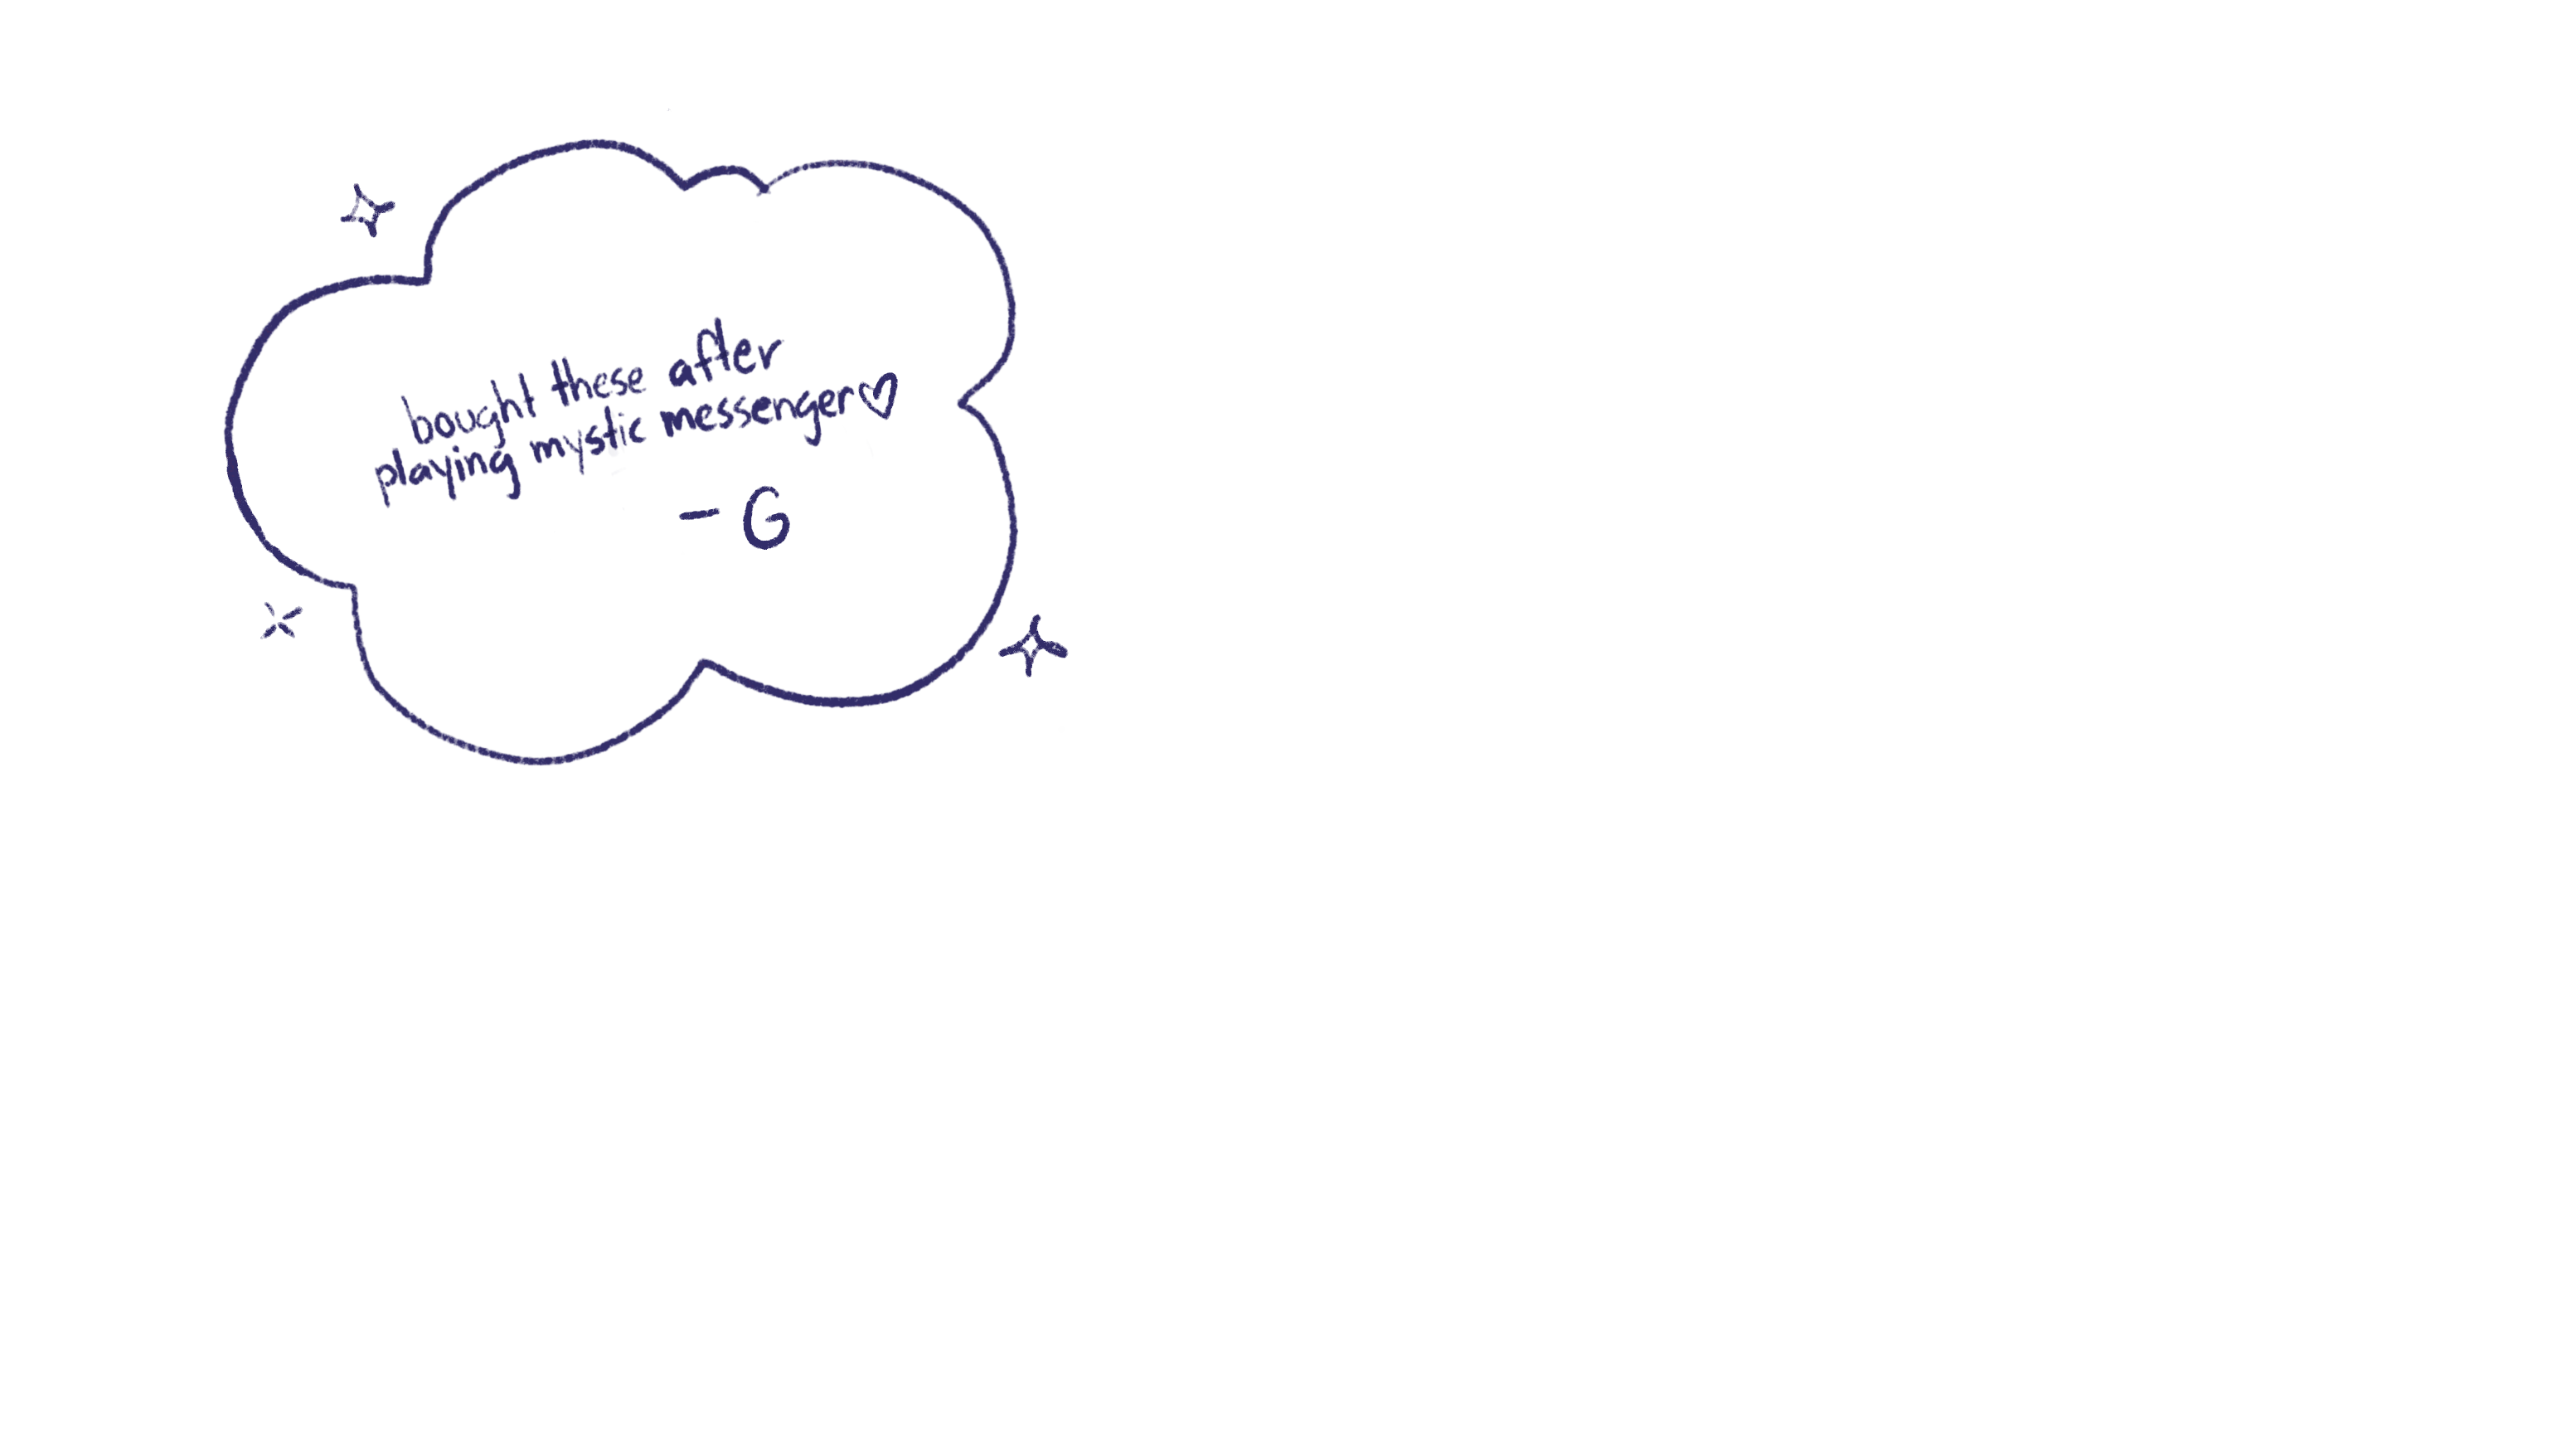 bought these after
playing mystic messenger♡
- G